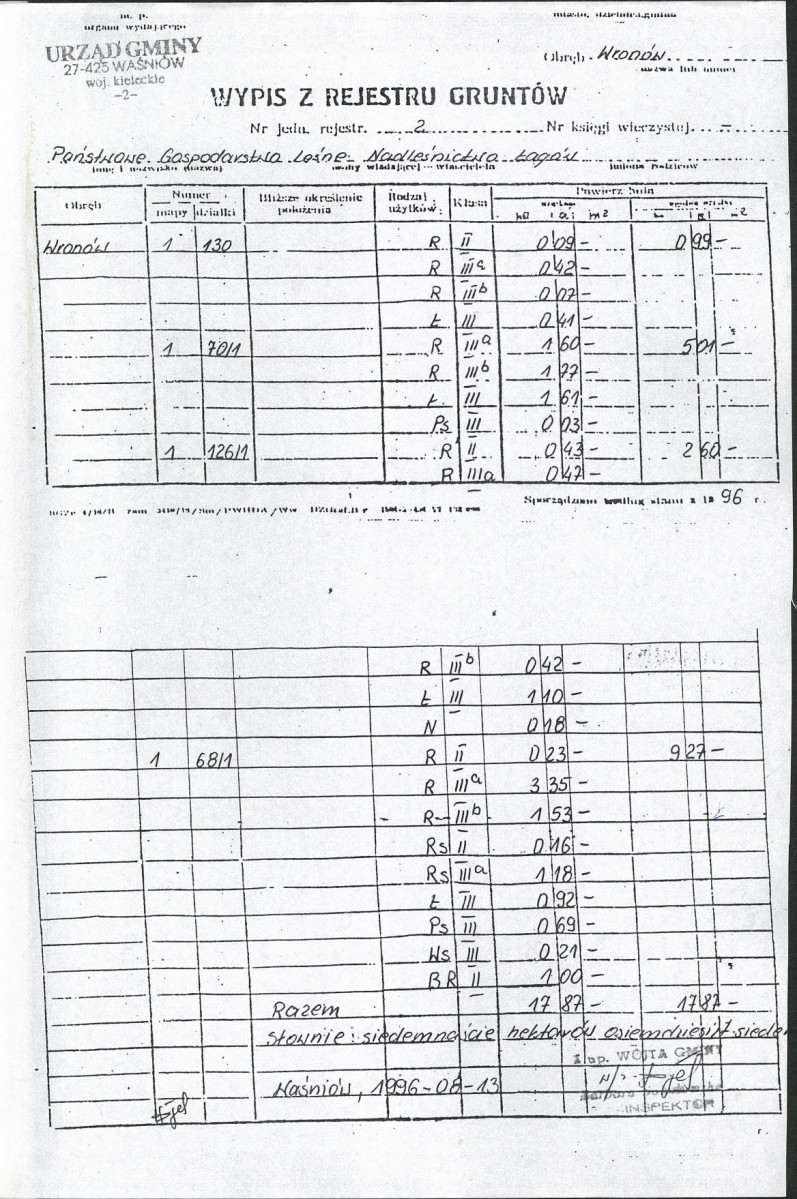 m. p.
organu wydającego
miasto, dzielnica, gmina
URZĄD GMINY
27-425 WAŚNIÓW
woj. kieleckie
-2-
Obręb Wronów
nazwa lub numer
WYPIS Z REJESTRU GRUNTÓW
Nr jedn. rejestr. 2 Nr księgi wieczystej —
Państwowe Gospodarstwo Leśne Nadleśnictwo Łagów
imię i nazwisko (nazwa) osoby władającej – właściciela imiona rodziców
Obręb Numer mapy działki Bliższe określenie położenia Rodzaj użytków Klasa Powierzchnia
ha a m2 ha a m2
Wronów 1 130 R II 0 09 - 0 99 -
R IIIa 0 42 -
R IIIb 0 07 -
Ł III 0 41 -
1 70/1 R IIIa 1 60 - 5 01 -
R IIIb 1 77 -
Ł III 1 61 -
Ps III 0 03 -
1 126/1 R II 0 43 - 2 60 -
R IIIa 0 47 -
Sporządzono według stanu z 19 96 r.
R IIIb 0 42 -
Ł III 1 10 -
N 0 18 -
1 68/1 R II 0 23 - 9 27 -
R IIIa 3 35 -
R IIIb 1 53 -
Rs II 0 16 -
Rs IIIa 1 18 -
Ł III 0 92 -
Ps III 0 69 -
Ws III 0 21 -
BR II 1 00 -
Razem 17 87 - 17 87 -
Słownie: siedemnaście hektarów osiemdziesiąt siede
Z up. WÓJTA GMINY
Waśniów, 1996-08-13
Barbara
INSPEKTOR